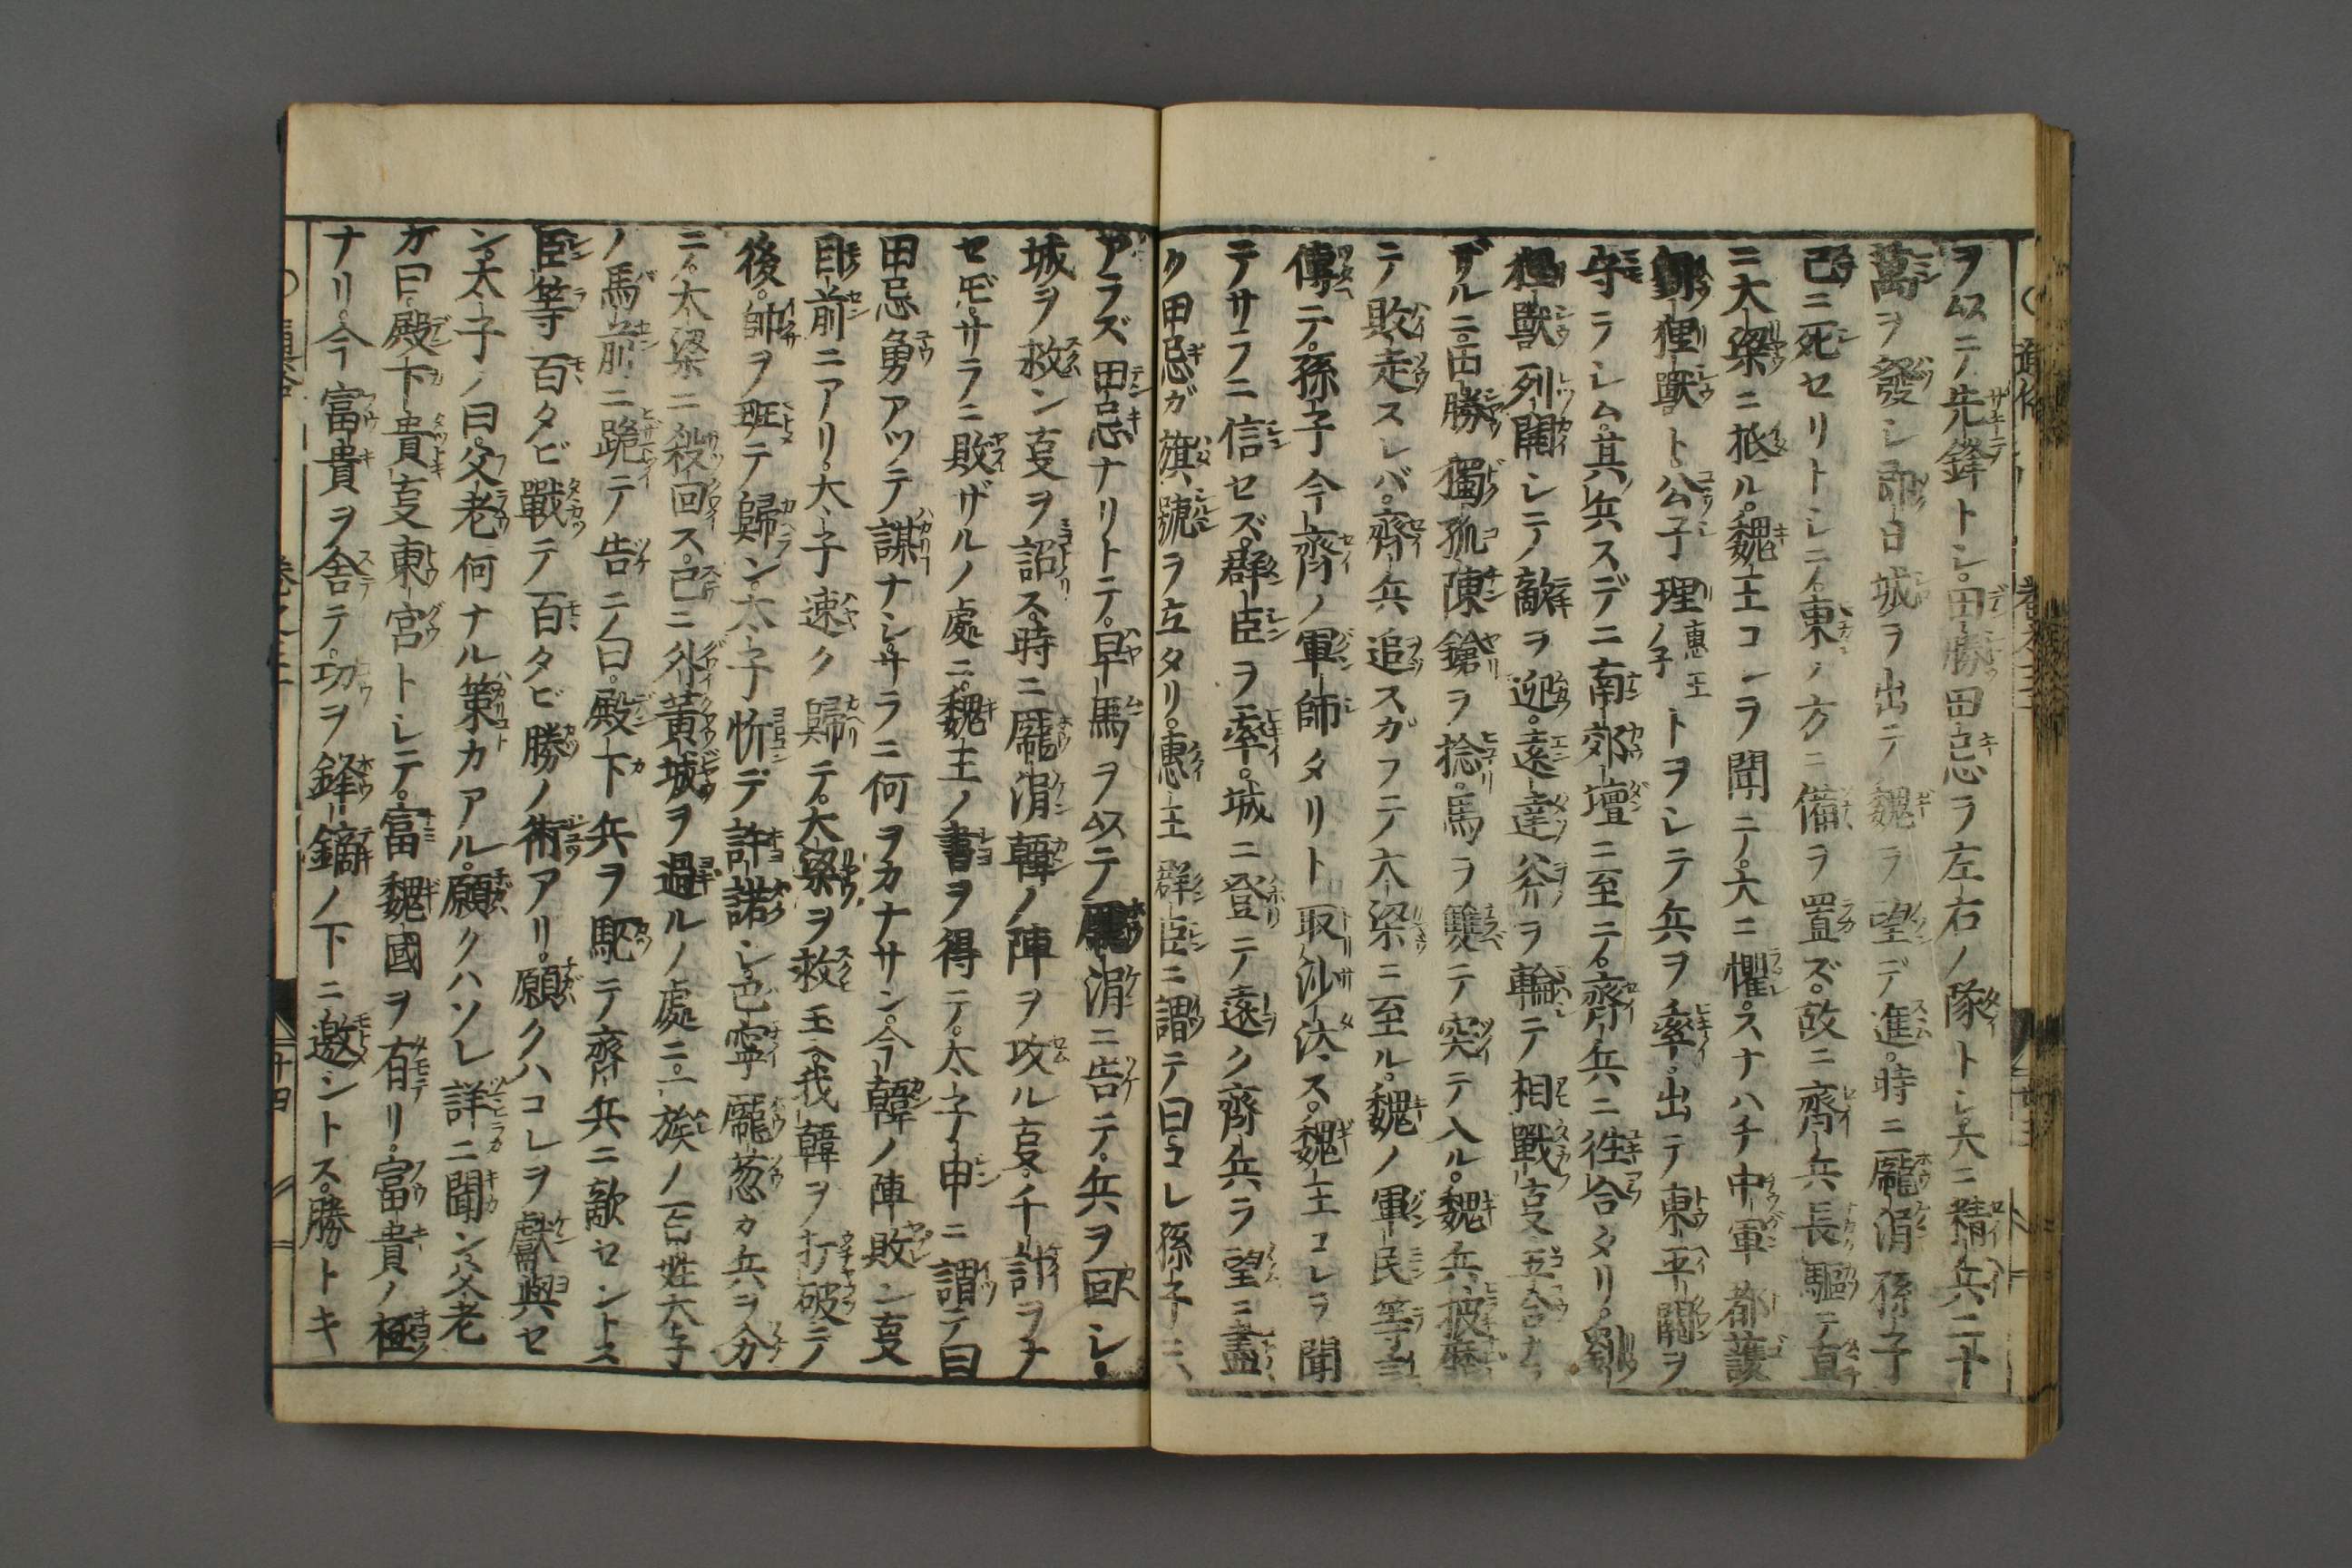 ヲ以ニテ先鋒トシ。田勝田忌ヲ左右ノ隊トシ大ニ精兵二十
萬ヲ發シ即日城ヲ出テ魏ヲ望デ進。時ニ龐涓孫子
已ニ死セリトシニ。東ノ方ニ備ヲ置ズ。故ニ齊兵長驅テ直
ニ大梁ニ抵ル。魏王コレヲ聞ニ。大ニ懼。スナハチ中軍都護
狸獸ト公子理惠王ノ子トヲシテ兵ヲ率。出テ東平關ヲ
守ラレム。其兵スデニ南郊壇ニ至ニ。齊兵ニ徃合タリ。劉
狸獸列開シテ敵ヲ迎。遠達斧ヲ輪テ相戰叓五合ナラ
ザルニ。田勝獨孤陳鎗ヲ捻。馬ヲ雙テ突テ入ル。魏兵披靡
テ敗走スレバ。齊兵追スガフテ大梁ニ至ル。魏ノ軍民等言
傳テ。孫子今齊ノ軍師タリト取沙汰ス。魏王コレヲ聞
テサラニ信セズ。群臣ヲ率。城ニ登テ遠ク齊兵ヲ望ニ盡
ク田忌ガ旗號ヲ立タリ。惠王群臣ニ謂テ曰コレ孫子ニハ
アラズ田忌ナリトテ。早馬ヲ以テ龐涓ニ告テ。兵ヲ回シ。
城ヲ救ン叓ヲ詔ス。時ニ龐涓韓ノ陣ヲ攻ル叓。千計ヲナ
セドモ。サラニ敗ザルノ處ニ。魏王ノ書ヲ得テ。太子申ニ謂テ曰
田忌勇アツテ謀ナシ。サラニ何ヲカナサン。今韓ノ陣敗ン叓
目前ニアリ。太子速ク歸テ。大梁ヲ救玉ヘ。我韓ヲ打破テ
後。帥ヲ班テ歸ン。太子忻デ許諾シ。色寧龐葱カ兵ヲ分
ニ。大梁ニ殺回ス。已ニ外黃城ヲ過ルノ處ニ。一族ノ百姓太子
ノ馬前ニ跪テ告ニノ曰。殿下兵ヲ駆テ齊兵ニ敵セントス
臣等百タビ戰テ百タビ勝ノ術アリ。願クハコレヲ獻與セ
ン。太子ノ曰。父老何ナル策カアル。願クハソレ詳ニ聞ン。父老
カ曰。殿下貴叓東宮トシテ。富魏國ヲ有リ。富貴ノ極
ナリ。今富貴ヲ舍テ。功ヲ鋒鏑ノ下ニ邀ントス。勝トキ
卷之三
十四